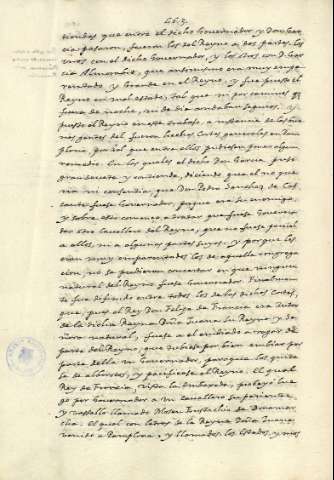 463.
tiendas que entre el dicho Governador, y Don Gar-
cia pasaron, fueron los del Reyno a dos partes: los
unos con el dicho Governador, y los otros con D. Gar-
cia Almoravit, que entonces era muy empa-
rentado, y Grande en el Reyno, y fue puesto el
Reyno en mal estado, tal que ni por caminos ni
fuera de noche, ni de dia andaban seguros.
puesto el Reyno en este trabajo, a instancia de las bue-
nas gentes del fuero, hechas Cortes generales en Pam-
plona, por tal que entre ellos pudiesen poner algun
remedio. En las quales el dicho Don Garcia puso
gran debate y contienda, diciendo que el no que-
ria ni consentia, que Don Pedro Sanchez de Cas-
cante fuese Governador, porque era su enemigo,
y sobre esto comenzo a tratar que fuese Governa-
dor otro Cavallero del Reyno, que no fuese parcial
a ellos, ni a algunas partes suyas. y porque los
eran muy emparentados los de aquella congrega-
cion, no se pudieron concertar en que ninguno
natural del Reyno fuese Governador. Finalmen-
te fue difinido entre todos los de dichas Cortes,
que, pues el Rey Don Felipe de Francia era tutor
de la dicha Reyna Doña Juana su Reyna y Se-
ñora natural, fuese a el embiado a rogar de
parte del Reyno, que tubiese por bien embiar por
parte della un Governador, para que los quita-
se de alborotos, y pacificase el Reyno. El qual
Rey de Francia, vista la embajada, proveyó lue-
go por Governador a un cavallero su pariente,
y vasallo llamado Mosen Eustachio de Beaumar-
chia. El qual con letras de la Reyna Doña Juana
venido a Pamplona, y llamados los Estados, y vis-